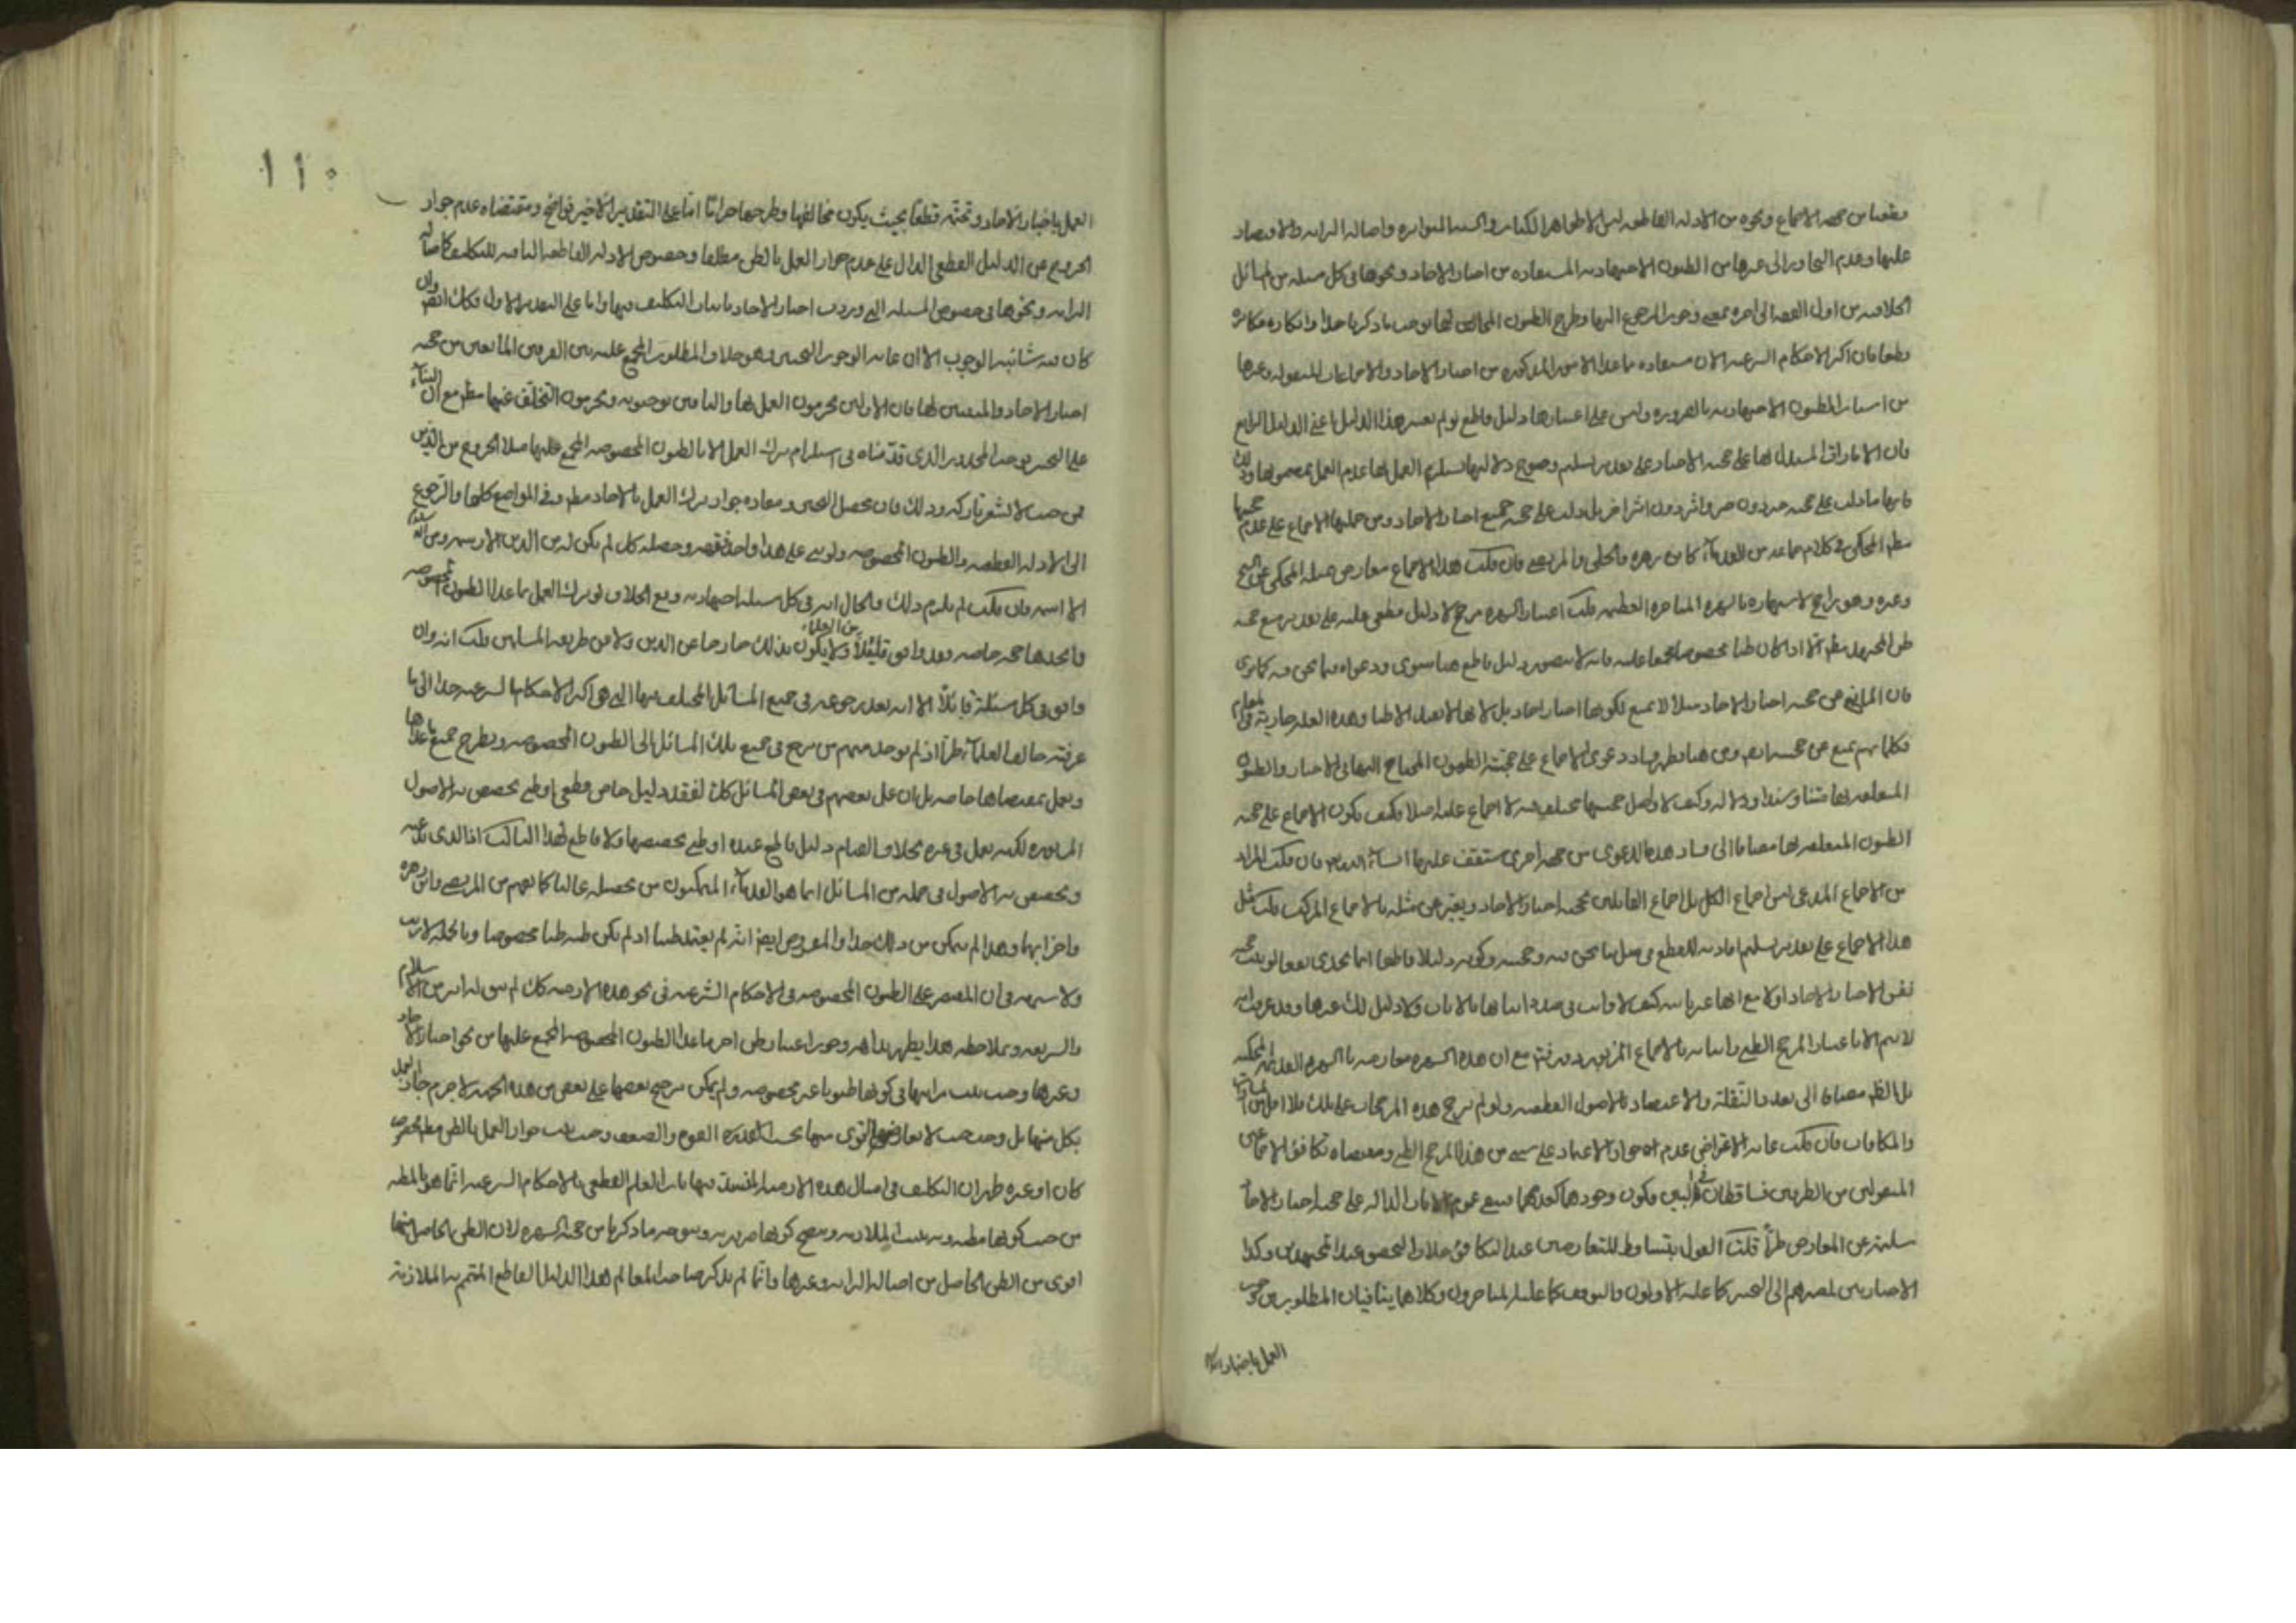 وقطعنا من جهة الاجماع ونحوه من الادلة القاطعة ليس الا ظواهر الكتاب والسنة المتواترة واصالة البراءة والاقتصار
عليها وعدم التجاوز الى غيرها من الظنون الاجتهادية المستفادة من اخبار الاحاد ونحوها في كل مسئلة من المسائل
الخلافية من اول الفقه الى اخره بمعنى وجوب الرجوع اليها وطرح الظنون المخالفة لها يوجب ما ذكرنا جدا وانكاره مكابرة
قطعا فان اكثر الاحكام الشرعية الان مستفادة مما عدا الامور المذكورة من اخبار الاحاد والاجماعات المنقولة وغيرها
من اسباب الظنون الاجتهادية بالضرورة وليس على اعتبارها دليل قاطع لو لم نعتبر هذا الدليل اعني الدليل الرابع
فان الامارات المستدل لها على حجية الاخبار على تقدير تسليم وضوح دلالتها يستلزم العمل بها عدم العمل بمضمونها وذلك
فانها ما دلت على حجية خبر دون خبر واثر دون اثر اخر بل دلت على حجية جميع اخبار الاحاد ومن جملتها الاجماع على عدم حجيتها
المحكي في كلام جماعة من القدماء كابن زهرة والحلي والمرتضى فان قلت هذا الاجماع معارض بمثله المحكي عن الشيخ
وغيره وهو راجح لاشتهاره بالشهرة المتاخرة العظيمة قلت اعتبار الشهرة مرجح لا دليل قطعي عليه على تقدير منع حجية
ظن المجتهد مطلقا الا اذا كان ظنا مخصوصا مجمعا عليه فانه لا يتصور دليل قاطع هنا سوى ودعواه فيما نحن فيه كما ترى
فان المانع من حجية اخبار الاحاد مثلا لا يمنع لكونها اخبار احاد بل لانها لا تفيد الا ظنا وهذه العلة جارية في
فكلامهم يمنع عن حجيته ايضا ومن هنا يظهر فساد دعوى الاجماع على حجية الظنون المحتاج اليها في الاخبار والظنون
المتعلقة بها متنا وسندا ودلالة وكيف لا واصل حجيتها مختلف فيه لا اجماع عليه اصلا فكيف يكون الاجماع على حجية
الظنون المتعلقة بها مضافا الى فساد هذه الدعوى من جهة اخرى ستقف عليها ان شاء الله تعالى فان قلت المراد
من الاجماع المدعى ليس اجماع الكل بل اجماع القائلين بحجية اخبار الاحاد ويعبر عن مثله بالاجماع المركب قلت مثل
هذا الاجماع على تقدير تسليم افادته للقطع في مثل ما نحن فيه وحجيته وكونه دليلا قاطعا انما يجدي نفعا لو ثبت حجية
نفس الاخبار الاحاد اولا مع انها غير ثابتة كيف لا وانت في صدد اثباتها بالايات ولا دليل لك غيرها وقد عرفت انه
لا يتم الا باعتبار المرجح الظني واثباته بالاجماع المزبور مع ان هذه الشهرة معارضة بالشهرة القديمة المحكية
بل الظاهر مضافا الى تعدد النقلة والاعتضاد بالاصول القطعية ولو لم ترجح هذه المرجحات على تلك فلا اقل من
والمكافات فان قلت غاية الاعتراض عدم جواز الاعتماد على شيء من هذا المرجح الظني ومقتضاه تكافؤ الاجماعين
المنقولين من الطرفين فيتساقطان في البين فيكون وجودهما كعدمهما فيبقى عموم الايات الدالة على حجية اخبار الاحاد
سليمة عن المعارض طرا قلت القول بتساقط المتعارضين عند التكافؤ خلاف التحقيق عند المجتهدين وكذا
الاخباريين لمصيرهم الى التخيير كما عليه الاولون والتوقف كما عليه المتاخرون وكلاهما ينافيان المطلوب من وجوب
العمل باخبار الاحاد
١١٠
العمل باخبار الاحاد وتحتمه قطعا بحيث يكون مخالفها وطرحها حراما اما على التقدير الاخير فواضح ومقتضاه عدم جواز
الخروج عن الدليل القطعي الدال على عدم جواز العمل بالظن مطلقا وخصوص الادلة القاطعة النافية للتكليف كاصالة
البراءة ونحوها في خصوص المسئلة التي وردت اخبار الاحاد باثبات التكليف فيها واما على التقدير الاول فكذلك ايضا وان
كان فيه شائبة الوجوب الا ان غايته الوجوب التخييري وهو خلاف المطلوب المجمع عليه بين الفريقين المانعين من حجية
اخبار الاحاد والمثبتين لها فان الاولين يحرمون العمل بها والثانين يوجبونه ويحرمون التخلف عنها مطلقا مع ان البناء
على التخيير يوجب المحذور الذي قدمناه في استلزام ترك العمل الا بالظنون المخصوصة المجمع عليها مثلا الخروج من الدين
من حيث لا يشعر تاركه وذلك فان محصل التخيير ومفاده جواز ترك العمل بالاحاد مطلقا وفي المواضع كلها والرجوع
الى الادلة القطعية والظنون المخصوصة ولو بنى على هذا واحد فقهه وحصله كان لم يكن له من الدين الا رسمه ومن
الا اسمه فان قلت لم يلزم ذلك والحال انه في كل مسئلة اجتهادية وقع الخلاف لو ترك العمل بما عدا الظنون المخصوصة
واتخذها حجة خاصة فقد وافق قليلا من العلماء ولا يكون بذلك خارجا عن الدين ولا من طريقة المسلمين قلت انه وان
وافق في كل مسئلة قائلا الا انه بعد رجوعه في جميع المسائل المختلف فيها التي هي اكثر الاحكام الشرعية جدا الى ما
عرفته خالف العلماء طرا اذ لم يوجد منهم من يرجع في جميع تلك المسائل الى الظنون المخصوصة ويطرح جميع ما عداها
ويعمل بمقتضاها خاصة بل ان عمل بعضهم في بعض المسائل كذلك لفقد دليل خاص قطعي او ظني يخصص به الاصول
المقررة لكنه يعمل في غيره بخلافه لقيام دليل قاطع عنده او ظني بخصيصها ولا قاطع لهذا
ويخصص به الاصول في جملة من المسائل انما هو القدماء المتمكنون من تحصيله غالبا كما يفهم من المرتضى وابن زهرة
واضرابهما وهذا لم يتمكن من ذلك جدا والمفروض ايضا انه لم يعتبر ظنيا اذ لم يكن ظنه ظنا مخصوصا وبالجملة لا ريب
ولا شبهة في ان المقتصر على الظنون المخصوصة في الاحكام الشرعية في نحو هذه الازمنة كان لم يبق له اثر من الاسلام
والشريعة وبملاحظة هذا يظهر بداهة وجوب اعتبار ظن اخر ما عدا الظنون المخصوصة المجمع عليها من نحو اخبار الاحاد
وغيرها وحيث ثبت تساويها في كونها ظنونا غير مخصوصة ولم يمكن ترجيح بعضها على بعض من هذه الجهة لا جرم جاز العمل
بكل منها بل وجب حيث لا تعارض القوي منها بحسب القوة والضعف وحيث ثبت جواز العمل بالظن مطلقا مخصوصا
كان او غيره ظهر ان التكليف في امثال هذه الازمنة المنسد فيها باب العلم القطعي بالاحكام الشرعية انما هو بالمظنة
من حيث كونها مظنة وبه يثبت الملازمة ويتضح كونها ضرورية ويتوجه ما ذكرنا من حجية الشهرة لان الظن الحاصل منها
اقوى من الظن الحاصل من اصالة البراءة وغيرها وانما لم يذكر صاحب المعالم هذا الدليل القاطع المتمم به الملازمة